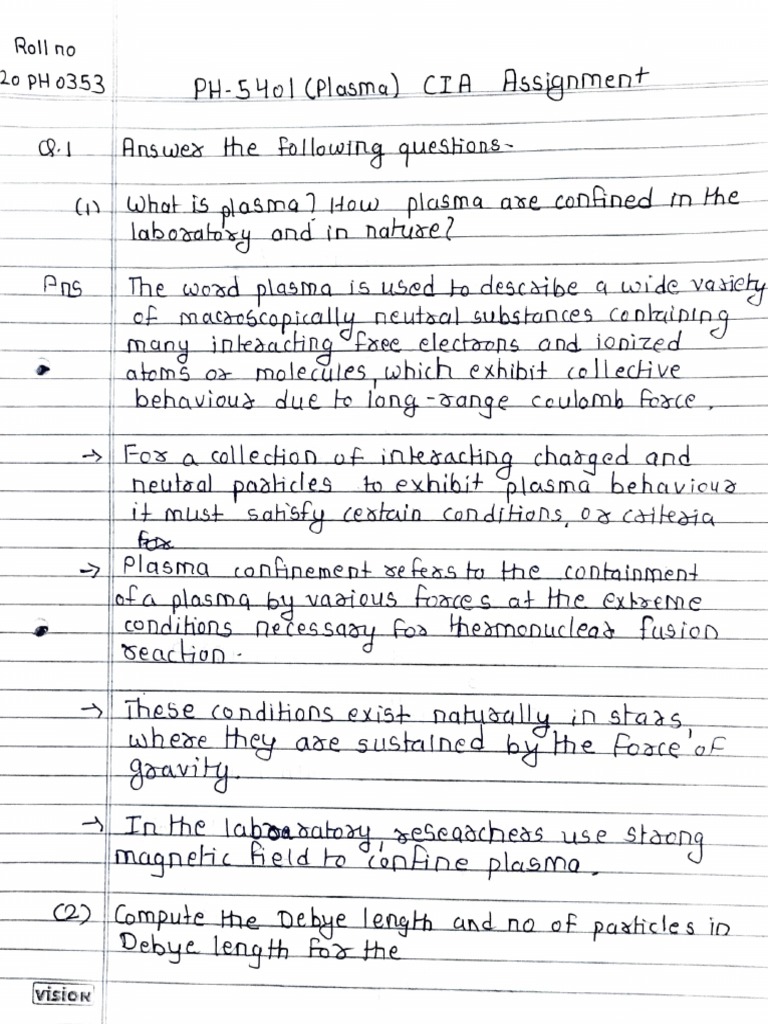 Roll no
20 PH0353
PH-5401 (Plasma) CIA Assignment
Q.1 Answer the following questions-
(1) What is plasma? How plasma are confined in the
laboratory and in nature?
Ans The word plasma is used to describe a wide variety
of macroscopically neutral substances containing
many interacting free electrons and ionized
atoms or molecules, which exhibit collective
behaviour due to long-range coulomb force.
→ For a collection of interacting charged and
neutral particles to exhibit plasma behaviour
it must satisfy certain conditions, or criteria
for
→ Plasma confinement refers to the containment
of a plasma by various forces at the extreme
conditions necessary for thermonuclear fusion
reaction.
→ These conditions exist naturally in stars,
where they are sustained by the force of
gravity.
→ In the laboratory, researchers use strong
magnetic field to confine plasma.
(2) Compute the Debye length and no of particles in
Debye length for the
VISION